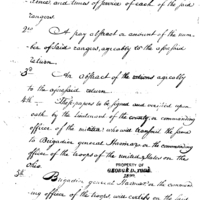 tence and times of service of each of the said
rangers
2nd A pay abstract or amount of the num-
ber of said rangers, agreably to the aforesaid
return
3d An abstract of the rations agreably
to the aforesaid return
4th These papers to be signed and verified upon
oath by the lieutenant of the county or commanding
officer of the militia who will transmit the same
to Brigadier general Harmar or the commanding
officer of the troops of the united States on the
Ohio
PROPERTY OF
5th Brigadier general Harmar or the command
ing officer of the troops will certify on the said